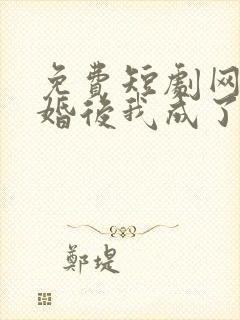 免費短劇网
婚後我成了
鄭堤